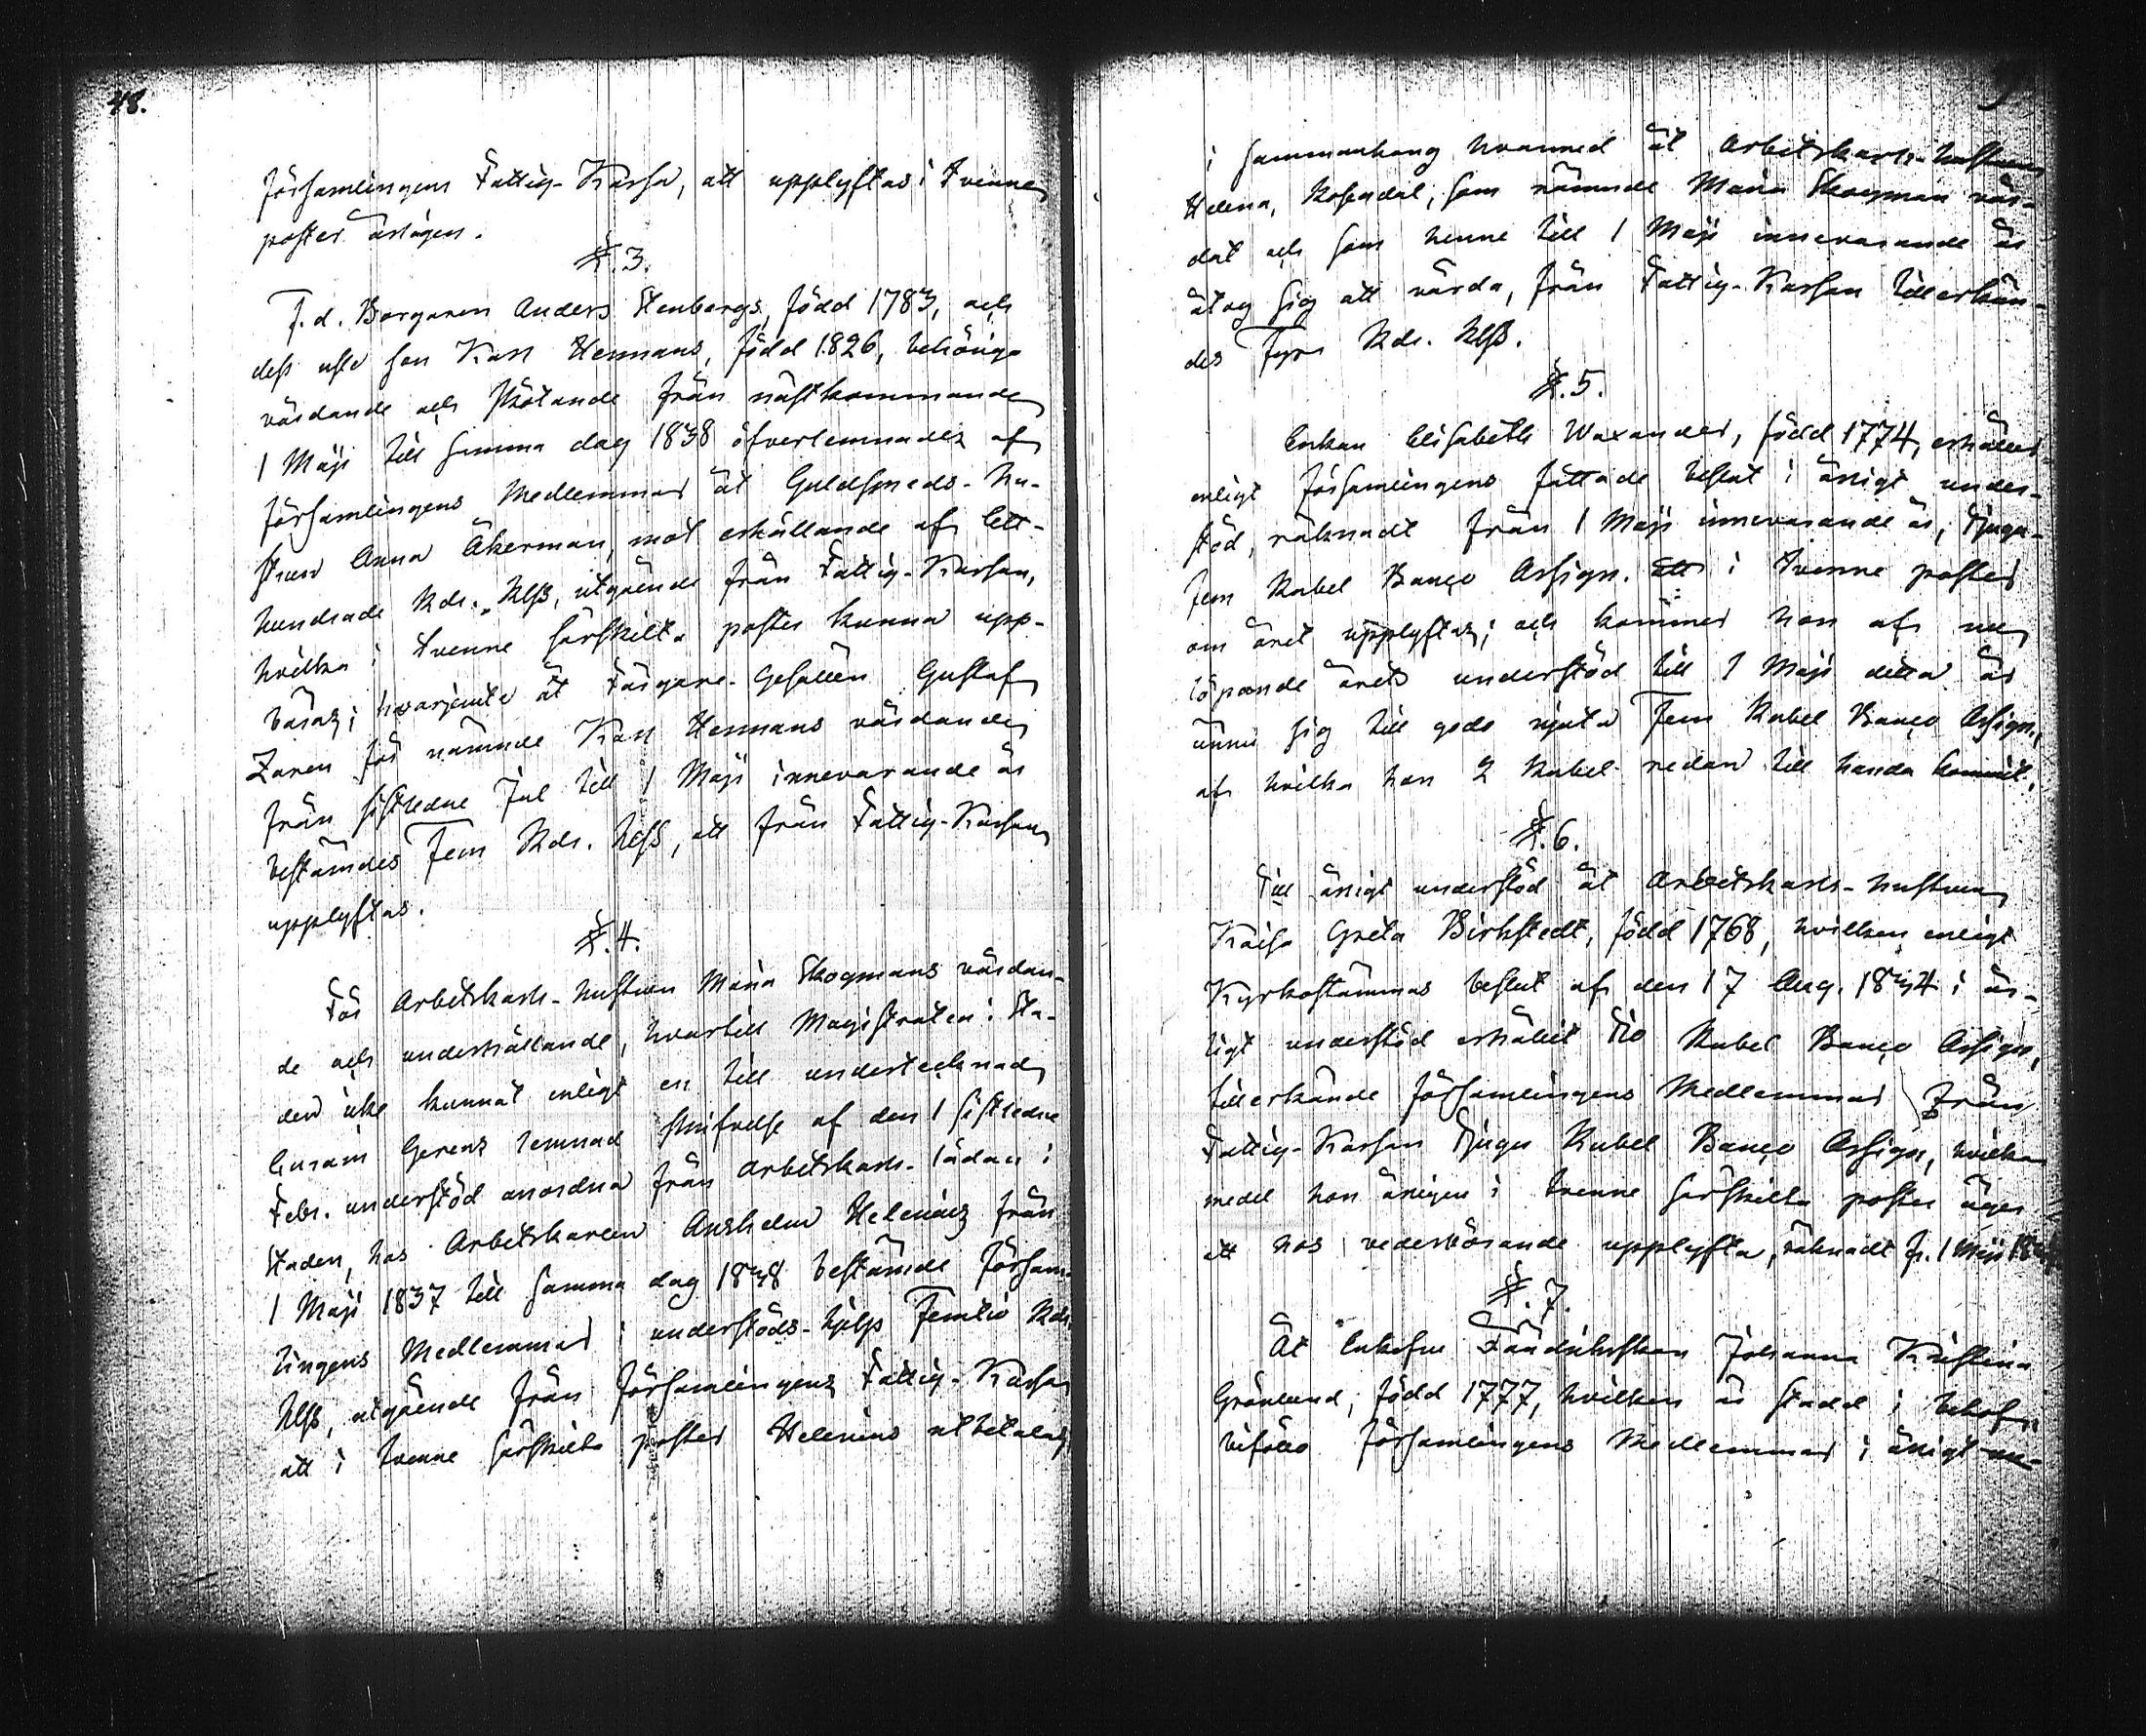 48.
församlingens Fattig-Kassa, att upplyftas i tvenne
poster årligen.
§. 3.
F. d. Borgaren Anders Stenbergs, född 1783, och
dess usla son Karl Hermans, född 1826, behöriga
vårdande och skötande från nästkommande
1 Maji till samma dag 1838 öfverlemnades af
församlingens Medlemmar åt Guldsmeds-hu-
strun Anna Åkerman, mot erhållande af Ett-
hundrade Rdr. Rgß, utgående från Fattig-Kassan,
hvilka i tvenne särskilta poster kunna upp-
bäras; hvarjemte åt Färgare-Gesällen Gustaf
Zaren för nämnde Karl Hermans vårdande
från sistledne Jul till 1 Maji innevarande år
bestämdes Fem Rdr. Rgß, att från Fattig-Kassan
upplyftas.
§. 4.
För Arbetskarls-hustrun Maria Skogmans vårdan-
de och underhållande, hvartill Magistraten i Sta-
den icke kunnat enligt en till undertecknad
Curam Gerens lemnad skrifvelse af den 1 sistledne
Febr. understöd anordna från Arbetskarls-lådan i
Staden, hos Arbetskarlen Anshelm Helenius från
1 Maji 1837 till samma dag 1838 bestämde försam-
lingens Medlemmar i understöds-hjelp Femtio Rdr
Rgß, utgående från församlingens Fattig-Kassa
att i tvenne särskilta poster Helenius utbetalas,
i sammanhang hvarmed åt Arbetskarls-hustrun
Helena Rosendal, som nämnde Maria Skogman vår-
dat och som henne till 1 Maji innevarande år
åtog sig att vårda, från Fattig-Kassan tillerkän-
des Fyra Rdr. Rgß.
§. 5.
Enkan Elisabeth Waxander, född 1774, erhåller
enligt församlingens fattade beslut i årligt under-
stöd, räknadt från 1 Maji innevarande år, Tjugu-
fem Rubel Banco Assign. att i tvenne poster
om året upplyftas; och kommer hon af nu
löpande årets understöd till 1 Maji detta år
ännu sig till godo njuta Fem Rubel Banco Assign.,
af hvilka hon 2 Rubel redan till handa kommit.
§. 6.
Till årligt understöd åt Arbetskarls-hustrun
Kaisa Greta Birkstedt, född 1768, hvilken enligt
Kyrkostämmas beslut af den 17 Aug. 1834 i år-
ligt understöd erhållit Tio Rubel Banco Assign,
tillerkände församlingens Medlemmar från
Fattig-Kassan Tjugu Rubel Banco Assign, hvilka
medel hon årligen i tvenne särskilta poster äger
att hos vederbörande upplyfta, räknadt fr. 1 Maji
§. 7.
Åt Enkefru Johanna Kristina
Grönlund, född 1777, hvilken är stadd i behof,
biföllo församlingens Medlemmar i årligt un-